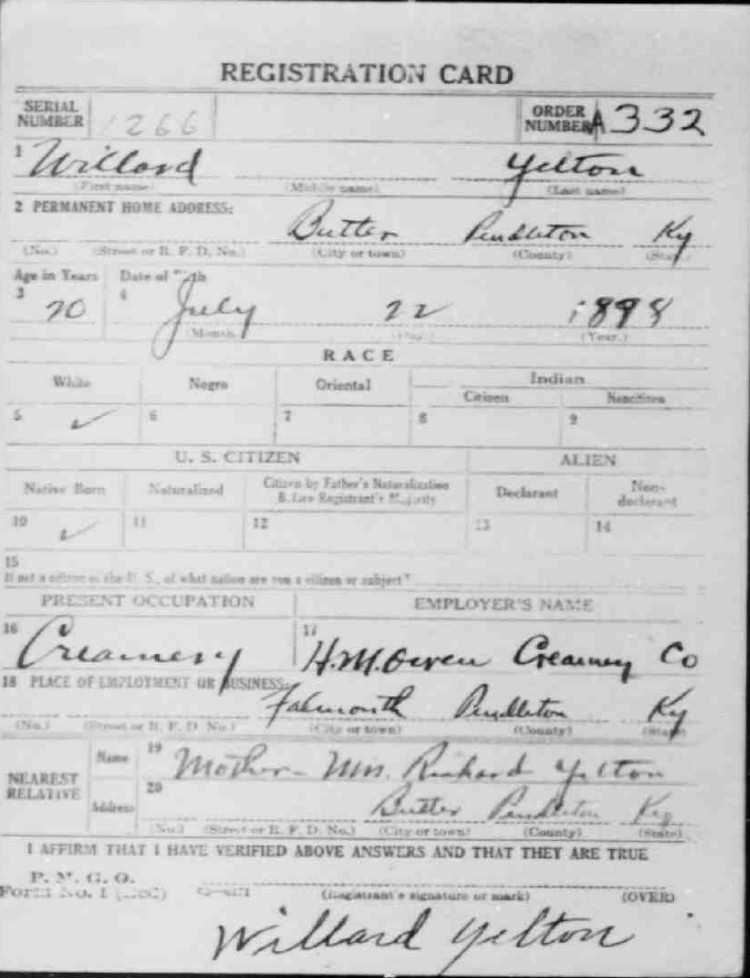 REGISTRATION CARD
SERIAL NUMBER 1266 ORDER NUMBER A 332
1 Willard Yelton
(First name) (Middle name) (Last name)
2 PERMANENT HOME ADDRESS:
Butler Pendleton Ky
(No.) (Street or R. F. D. No.) (City or town) (County) (State)
Age in Years Date of Birth
3 20 4 July 22 1898
(Month) (Day) (Year.)
RACE
White Negro Oriental Indian
Citizen Noncitizen
5 ✓ 6 7 8 9
U. S. CITIZEN ALIEN
Native Born Naturalized Citizen by Father's Naturalization Before Registrant's Majority Declarant Non-declarant
10 ✓ 11 12 13 14
15
If not a citizen of the U. S., of what nation are you a citizen or subject?
PRESENT OCCUPATION EMPLOYER'S NAME
16 Creamery 17 H.M. Owen Creamey Co
18 PLACE OF EMPLOYMENT OR BUSINESS:
Falmouth Pendleton Ky
(No.) (Street or R. F. D. No.) (City or town) (County) (State)
NEAREST RELATIVE
Name 19 Mother - Mrs. Richard Yelton
Address 20 Butler Pendleton Ky
(No.) (Street or R. F. D. No.) (City or town) (County) (State)
I AFFIRM THAT I HAVE VERIFIED ABOVE ANSWERS AND THAT THEY ARE TRUE
P. M. G. O.
Form No. 1 (Registrant's signature or mark) (OVER)
Willard Yelton